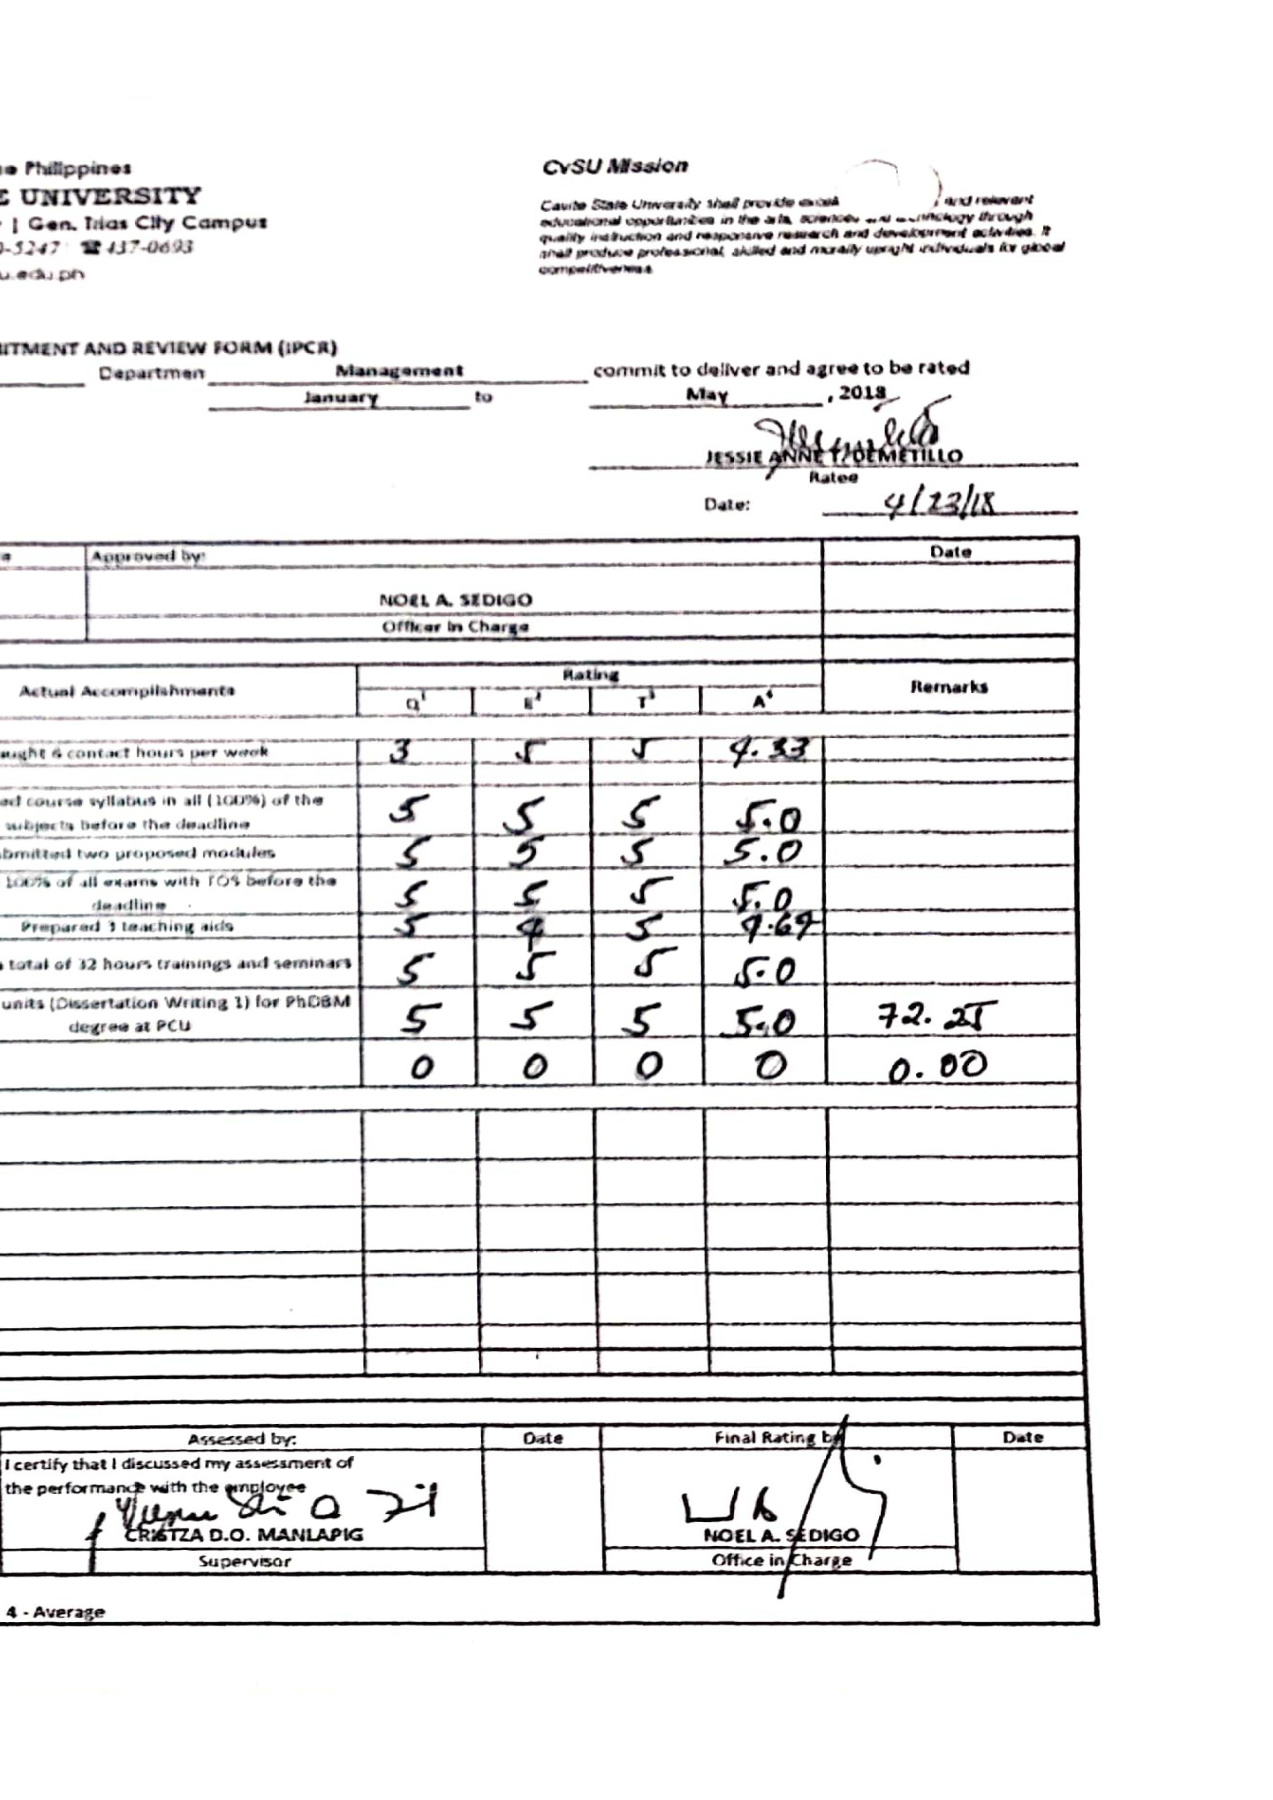 ne Philippines
E UNIVERSITY
| Gen. Trias City Campus
0-5247 ☎ 437-0693
u.edu.ph
CvSU Mission
Cavite State University shall provide excel and relevant
educational opportunities in the arts, sciences and technology through
quality instruction and responsive research and development activities. It
shall produce professional, skilled and morally upright individuals for global
competitiveness.
ITMENT AND REVIEW FORM (IPCR)
Departmen Management commit to deliver and agree to be rated
January to May , 2018
JESSIE ANNE T. DEMETILLO
Ratee
Date: 4/23/18
Approved by: Date
NOEL A. SEDIGO
Officer In Charge
Actual Accomplishments Rating Remarks
Q¹ E² T³ A⁴
aught 6 contact hours per week 3 5 5 4.33
ed course syllabus in all (100%) of the
subjects before the deadline 5 5 5 5.0
bmitted two proposed modules 5 5 5 5.0
100% of all exams with TOS before the
deadline 5 5 5 5.0
Prepared 3 teaching aids 5 4 5 4.67
total of 32 hours trainings and seminars 5 5 5 5.0
units (Dissertation Writing 1) for PhDBM
degree at PCU 5 5 5 5.0 72.25
0 0 0 0 0.00
Assessed by: Date Final Rating by Date
I certify that I discussed my assessment of
the performance with the employee
CRISTZA D.O. MANLAPIG NOEL A. SEDIGO
Supervisor Office in Charge
4 - Average